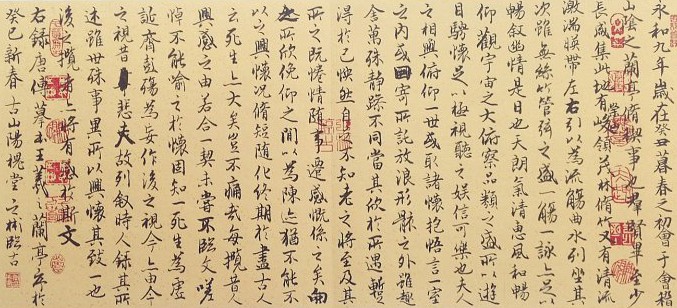 永和九年歲在癸丑暮春之初會于會稽
山陰之蘭亭脩稧事也羣賢畢至少
長咸集此地有峻領茂林脩竹又有清流
激湍暎帶左右引以為流觴曲水列坐其
次雖無絲竹管弦之盛一觴一詠亦足以
暢叙幽情是日也天朗氣清惠風和暢
仰觀宇宙之大俯察品類之盛所以遊
目騁懷足以極視聽之娛信可樂也夫人
之相與俯仰一世或取諸懷抱悟言一室
之內或因寄所託放浪形骸之外雖趣
舍萬殊静躁不同當其欣於所遇暫
得於己怏然自足不知老之將至及其
所之既惓情隨事遷感慨係之矣向
之所欣俛仰之間以為陳迹猶不能不
以之興懷況脩短隨化終期於盡古人
云死生亦大矣豈不痛哉每攬昔人
興感之由若合一契未嘗不臨文嗟
悼不能喻之於懷固知一死生為虛
誕齊彭殤為妄作後之視今亦由今
之視昔悲夫故列叙時人錄其所
述雖世殊事異所以興懷其致一也
後之攬者亦將有感於斯文
右錄唐傳摹本王羲之蘭亭序於
癸巳新春古山陽槐堂之彬臨古